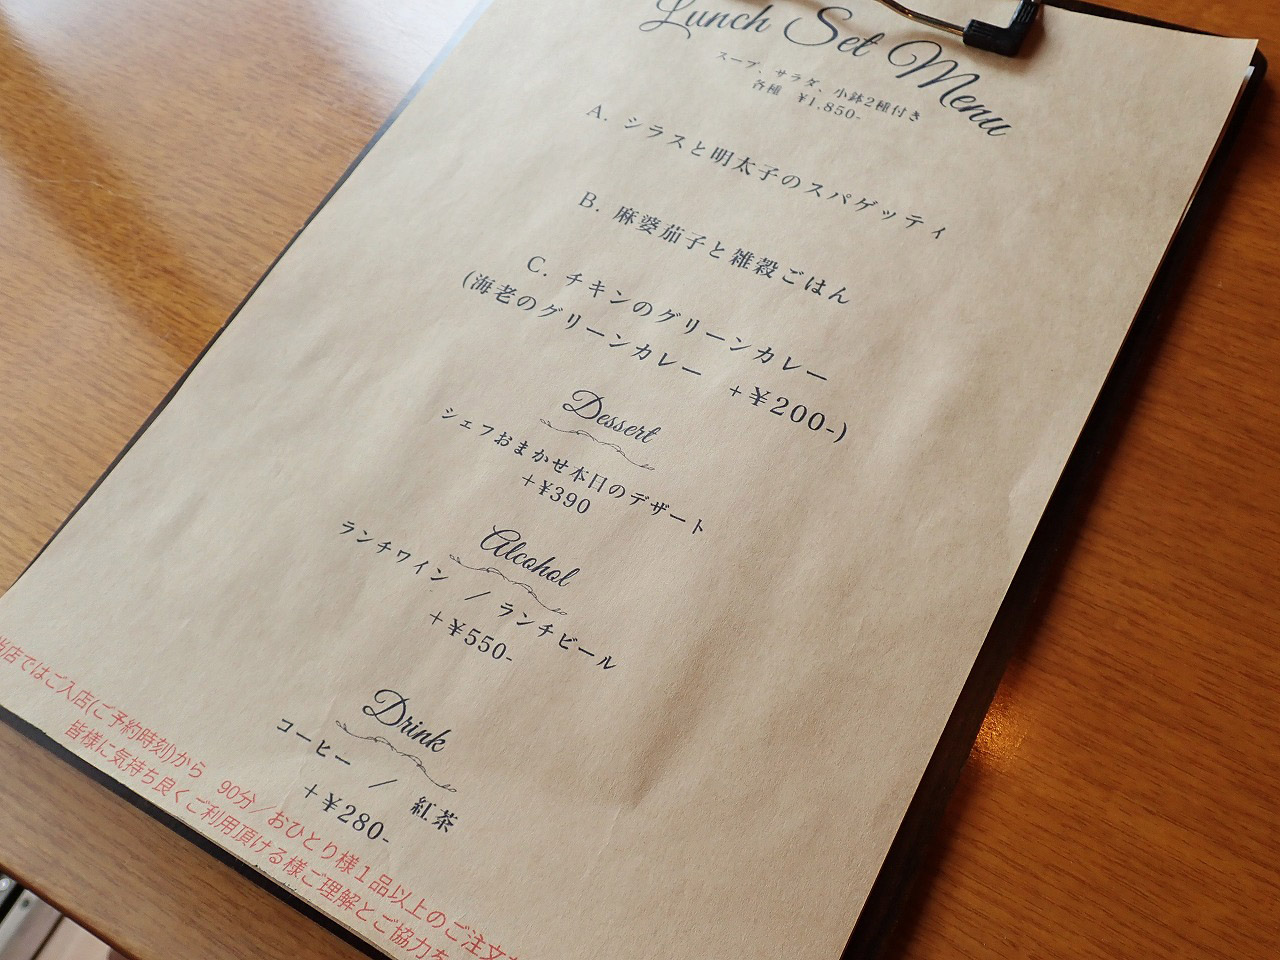 Lunch Set Menu
スープ、サラダ、小鉢2種付き
各種 ¥1,850-
A. シラスと明太子のスパゲッティ
B. 麻婆茄子と雑穀ごはん
C. チキンのグリーンカレー
(海老のグリーンカレー +¥200-)
Dessert
シェフおまかせ本日のデザート
+¥390
Alcohol
ランチワイン / ランチビール
+¥550-
Drink
コーヒー / 紅茶
+¥280-
当店ではご入店(ご予約時刻)から 90分/おひとり様1品以上のご注文
皆様に気持ち良くご利用頂ける様ご理解とご協力を